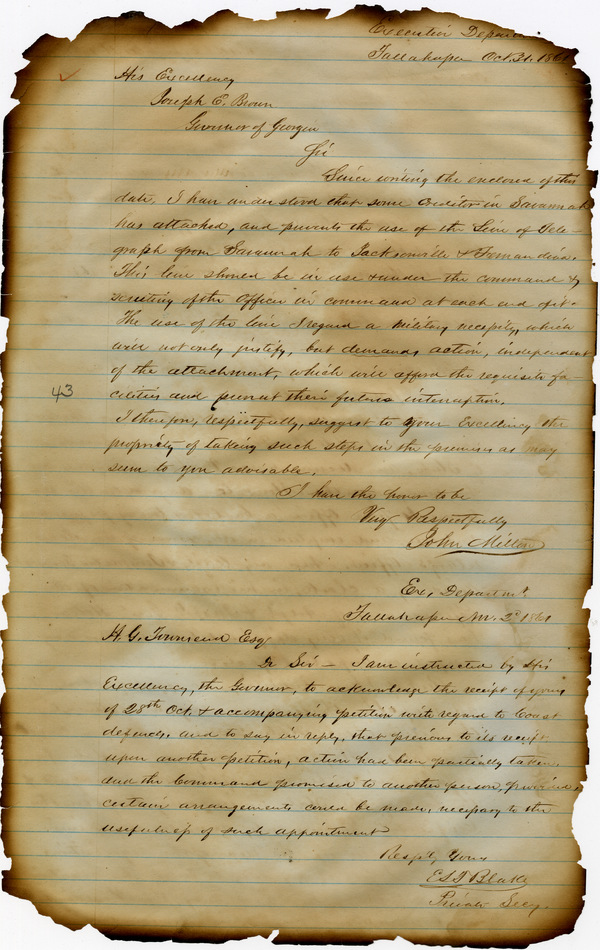 Executive Departm
Tallahassee Oct. 31. 1861
His Excellency
Joseph E. Brown
Governor of Georgia
Sir
Since writing the enclosed of this
date, I have understood that some Creditor in Savannah
has attached, and prevents the use of the Line of Tele-
graph from Savannah to Jacksonville & Fernandina.
This line should be in use & under the command &
scrutiny of the Officer in command at each end of it.
The use of the line I regard a Military necessity, which
will not only justify, but demands action, independent
of the attachment, which will afford the requisite fa-
cilities and prevent their future interruption.
I therefore, respectfully, suggest to your Excellency the
propriety of taking such steps in the premises as may
seem to you advisable.
I have the honor to be
Very Respectfully
John Milton
43
Ex. Departmt.
Tallahassee Nov. 2d 1861
H. G. Townsend Esq
Dr Sir – I am instructed by His
Excellency, the Governor, to acknowledge the receipt of yours
of 28th Oct. & accompanying petition with regard to Coast
defends, and to say in reply, that previous to its receipt
upon another petition, action had been partially taken,
and the Command promised to another person, provided
certain arrangements could be made, necessary to the
usefulness of such appointment
Respty Yours
Blake
Private Secy.